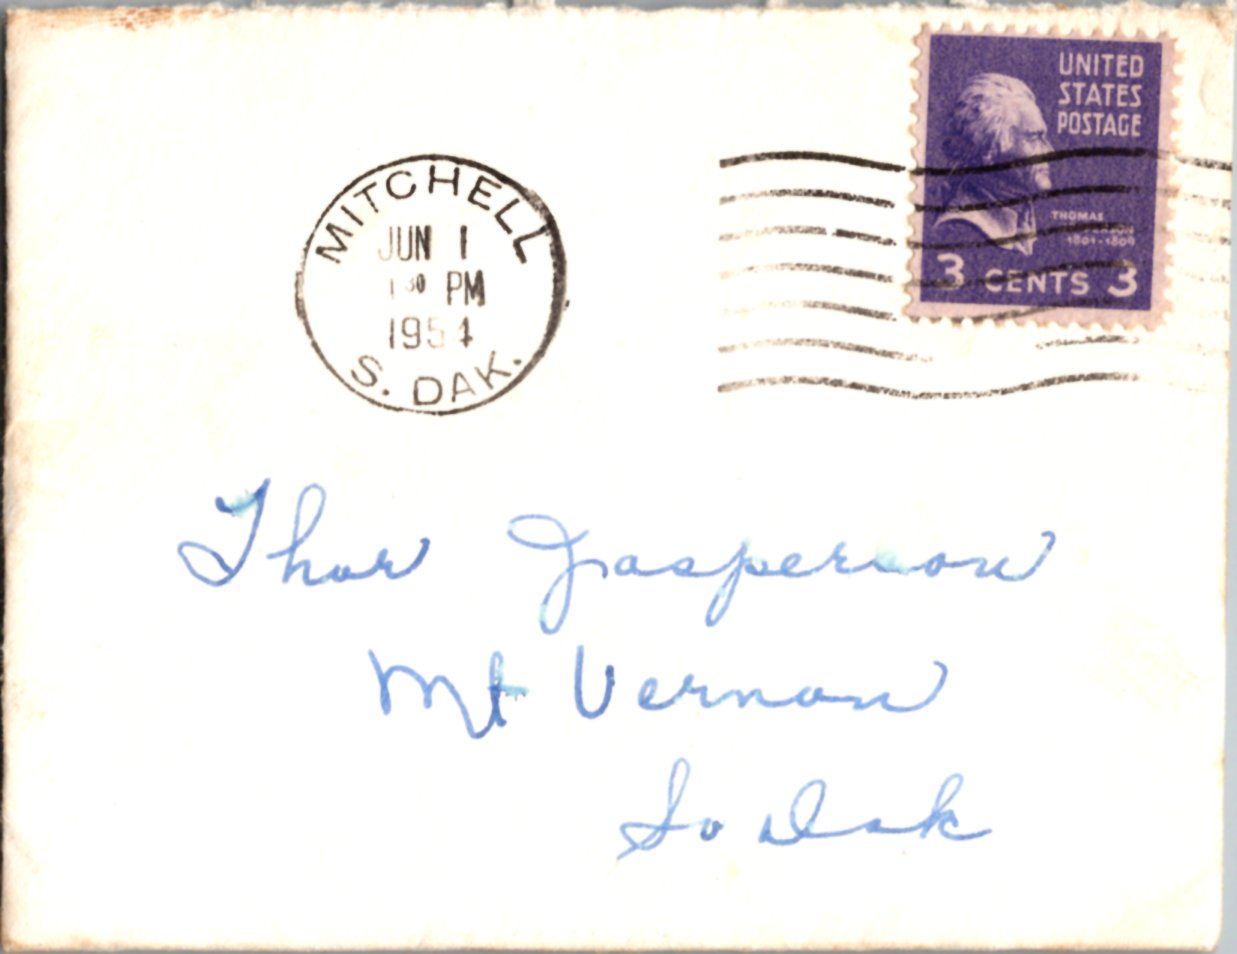 UNITED
STATES
POSTAGE
THOMAS
JEFFERSON
1801-1809
3 CENTS 3
MITCHELL
JUN 1
1 30 PM
1954
S. DAK.
Thor Jasperson
Mt Vernon
So Dak